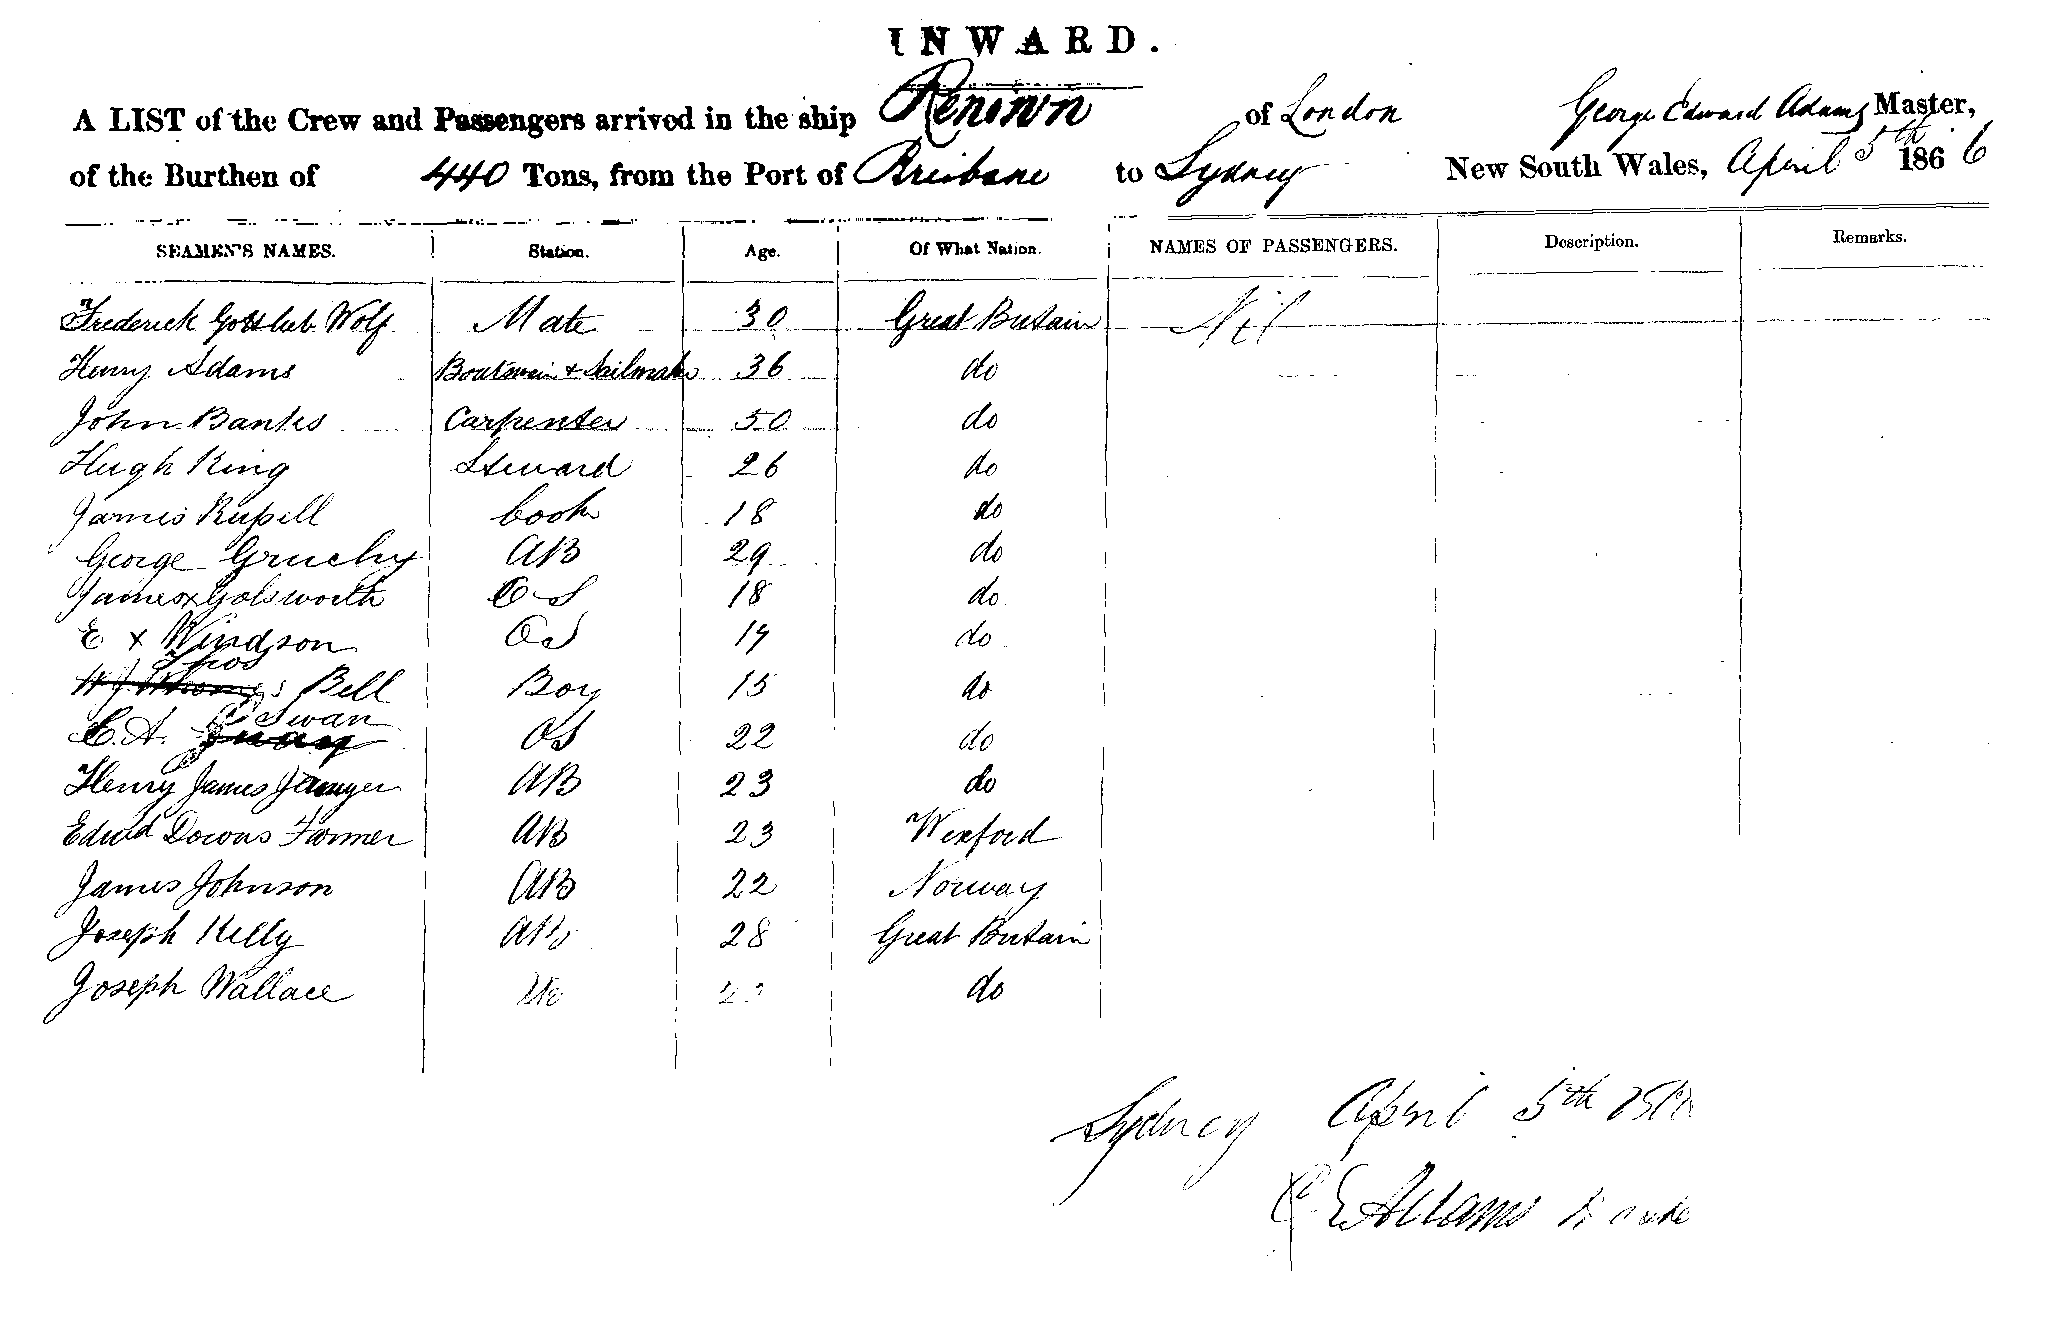 INWARD.
A LIST of the Crew and Passengers arrived in the ship Renown of London George Edward Adams Master,
of the Burthen of 440 Tons, from the Port of Brisbane to Sydney New South Wales, April 5th 1866
SEAMEN'S NAMES. Station. Age. Of What Nation. NAMES OF PASSENGERS. Description. Remarks.
Frederick Gottlieb Wolf Mate 30 Great Britain Nil
Henry Adams Boatswain & Sailmaker 36 do
John Banks Carpenter 50 do
Hugh King Steward 26 do
James Russell Cook 18 do
George Gruchy AB 29 do
James x Golsworth OS 18 do
E x Windson OS 19 do
Thos
Bell Boy 15 do
Swan
C. A. OS 22 do
Henry James AB 23 do
Edwd Downs Farmer AB 23 Wexford
James Johnson AB 22 Norway
Joseph Kelly AB 28 Great Britain
Joseph Wallace do
Sydney April 5th
G E Adams